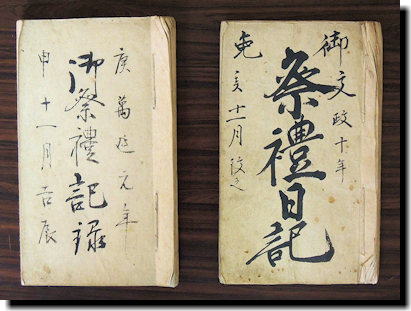 御 文政十年
祭禮日記
免 亥十一月改之
庚 萬延元年
御祭禮記録
申 十一月吉辰